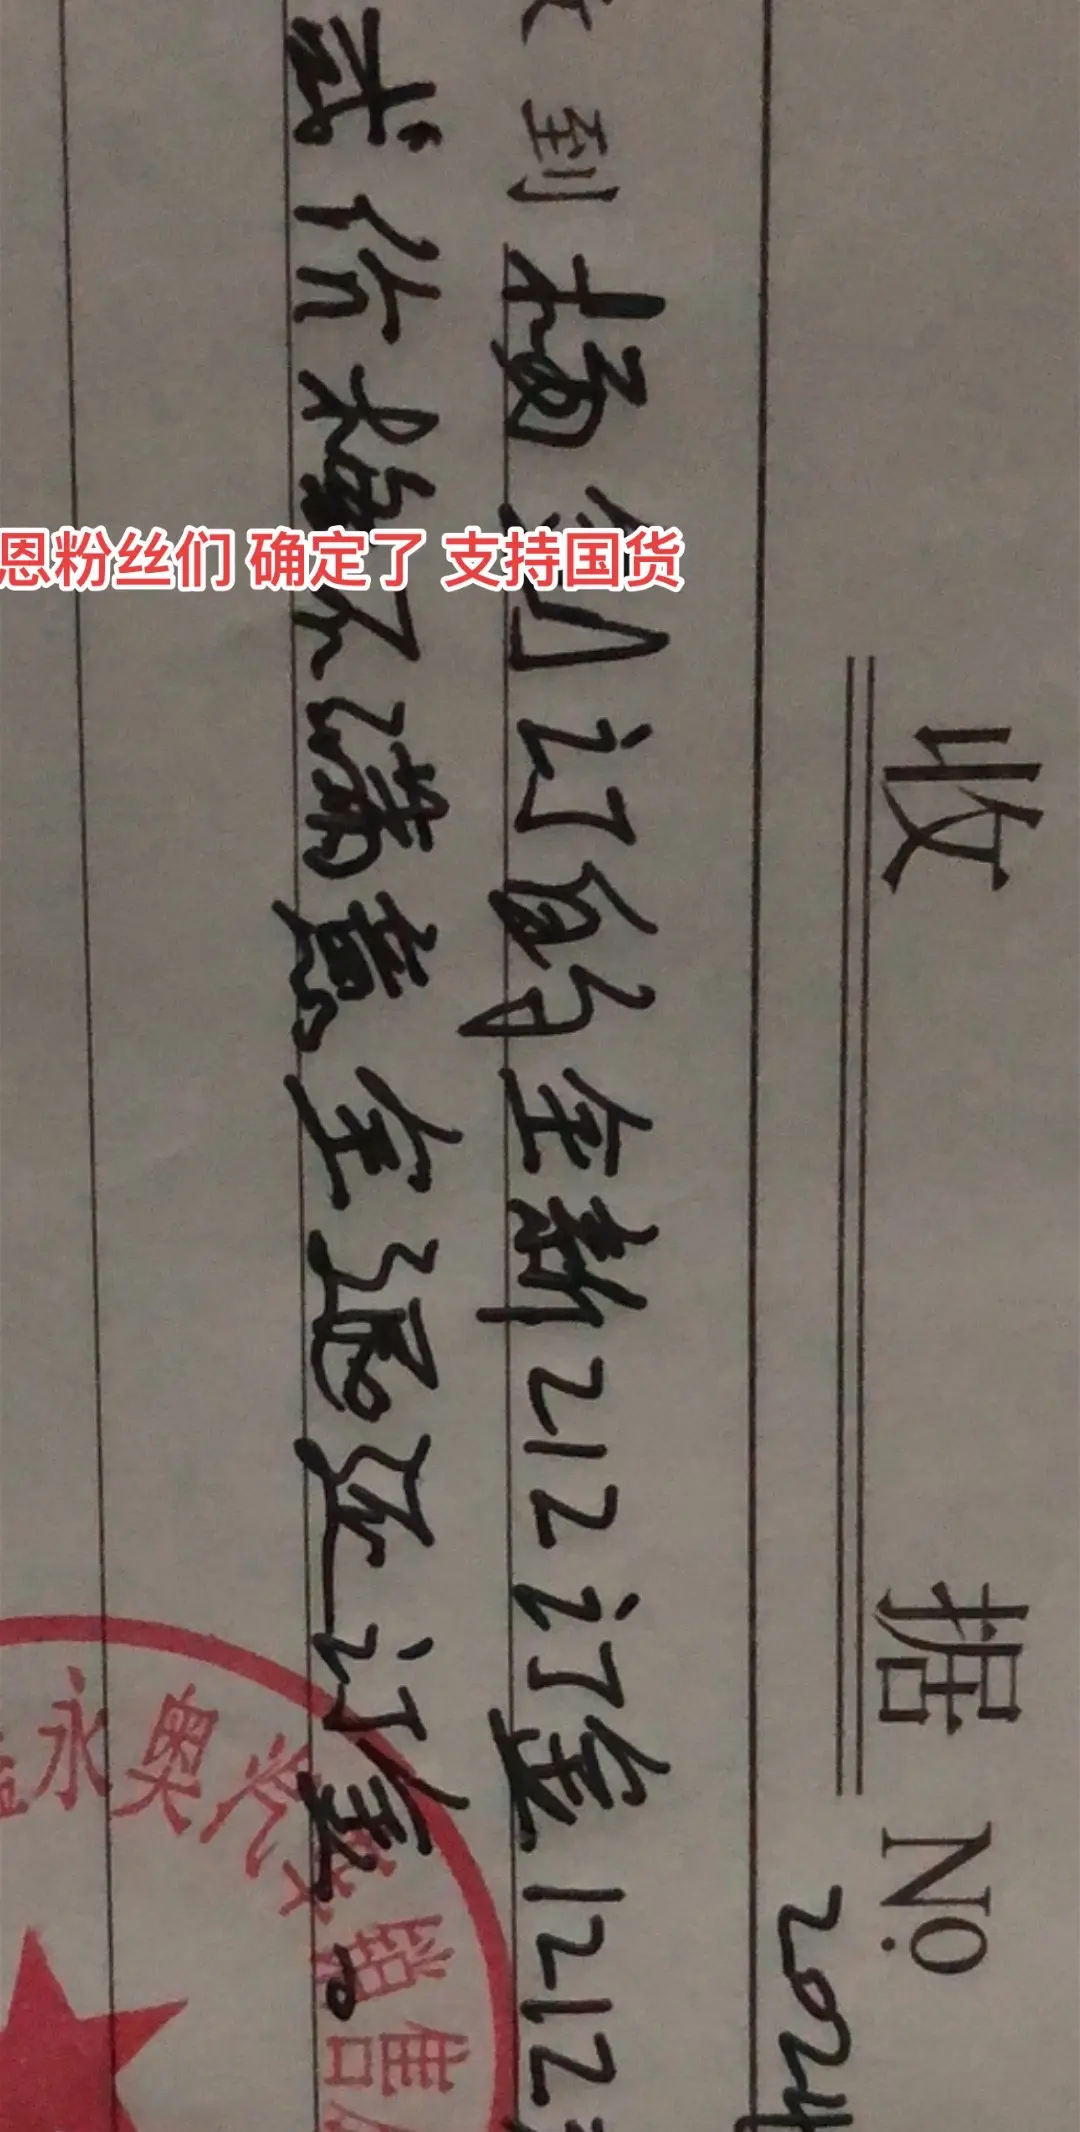 收 据 №
2024
到 杨 订的全新212订金1212
式价格不满意全退还订金。
恩粉丝们 确定了 支持国货
永奥汽车销售